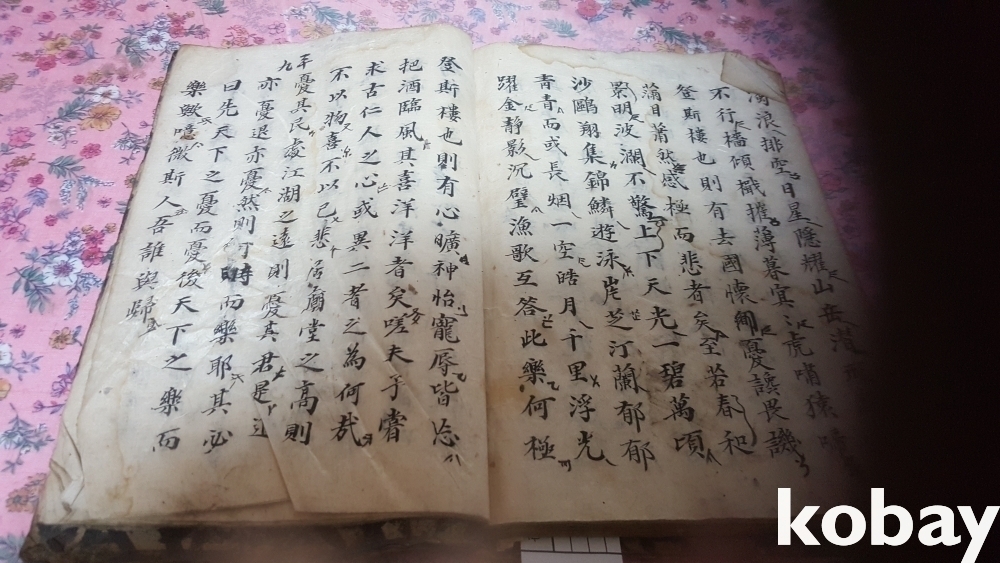 浪排空日星隱耀山岳潛
不行橋傾檝摧薄暮冥冥虎嘯猿啼
登斯樓也則有去國懷鄉憂讒畏譏
滿目蕭然感極而悲者矣至若春和
景明波瀾不驚上下天光一碧萬頃
沙鷗翔集錦鱗遊泳岸芝汀蘭郁郁
青青而或長烟一空皓月千里浮光
躍金靜影沉璧漁歌互答此樂何極
登斯樓也則有心曠神怡寵辱皆忘
把酒臨風其喜洋洋者矣嗟夫予嘗
求古仁人之心或異二者之為何哉
不以物喜不以已悲居廟堂之高則
憂其民處江湖之遠則憂其君是進
亦憂退亦憂然則何時而樂耶其必
曰先天下之憂而憂後天下之樂而
樂歟噫微斯人吾誰與歸
kobay